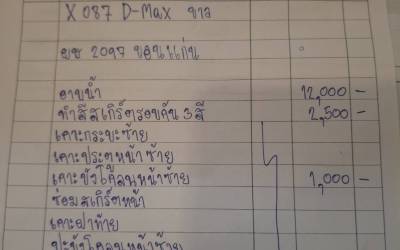 X 087 D-Max ขาว
ยช 2097 ขอนแก่น
อาบน้ำ 12,000 -
ทำสีสเกิร์ตรอบคัน 3 สี 2,500 -
เคาะกระบะซ้าย
เคาะประตูหน้าซ้าย
เคาะบังโคลนหน้าซ้าย 1,000 -
ซ่อมสเกิร์ตหน้า
เคาะฝาท้าย